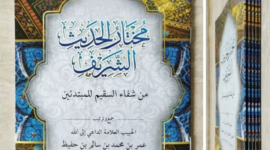 مختار الحديث
الشريف
من شفاء السقيم للمبتدئين
جمع وترتيب
الحبيب العلامة الداعي إلى الله
عمر بن محمد بن سالم بن حفيظ